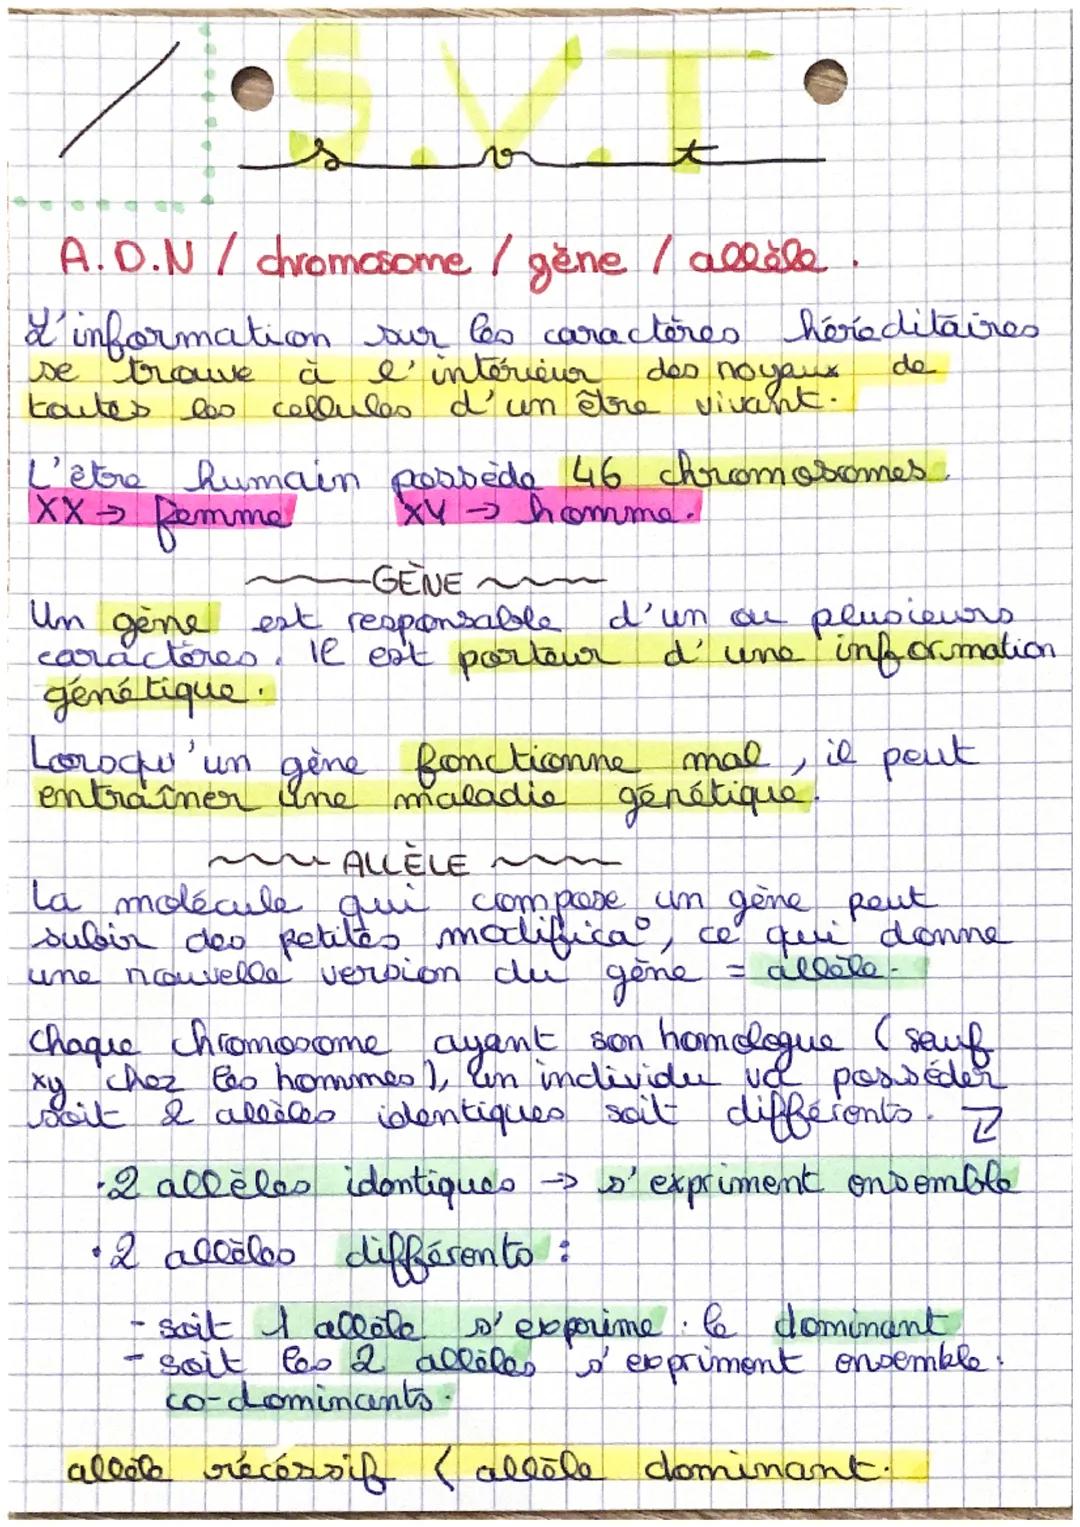 S.V.T
s v t
A.D.N / chromosome / gène / allèle.
L'information sur les caractères héréditaires
se trouve à l'intérieur des noyaux de
toutes les cellules d'un être vivant.
L'être humain possède 46 chromosomes.
XX → femme XY → homme.
GÈNE
Un gène est responsable d'un ou plusieurs
caractères. Il est porteur d'une information
génétique.
Lorsqu'un gène fonctionne mal, il peut
entraîner une maladie génétique.
ALLÈLE
La molécule qui compose un gène peut
subir des petites modifica°, ce qui donne
une nouvelle version du gène = allèle.
Chaque chromosome ayant son homologue (sauf
xy chez les hommes), un individu va posséder
soit 2 allèles identiques soit différents.
• 2 allèles identiques → s'expriment ensemble
• 2 allèles différents :
- soit 1 allèle s'exprime : le dominant
- soit les 2 allèles s'expriment ensemble :
co-dominants.
allèle récéssif < allèle dominant.